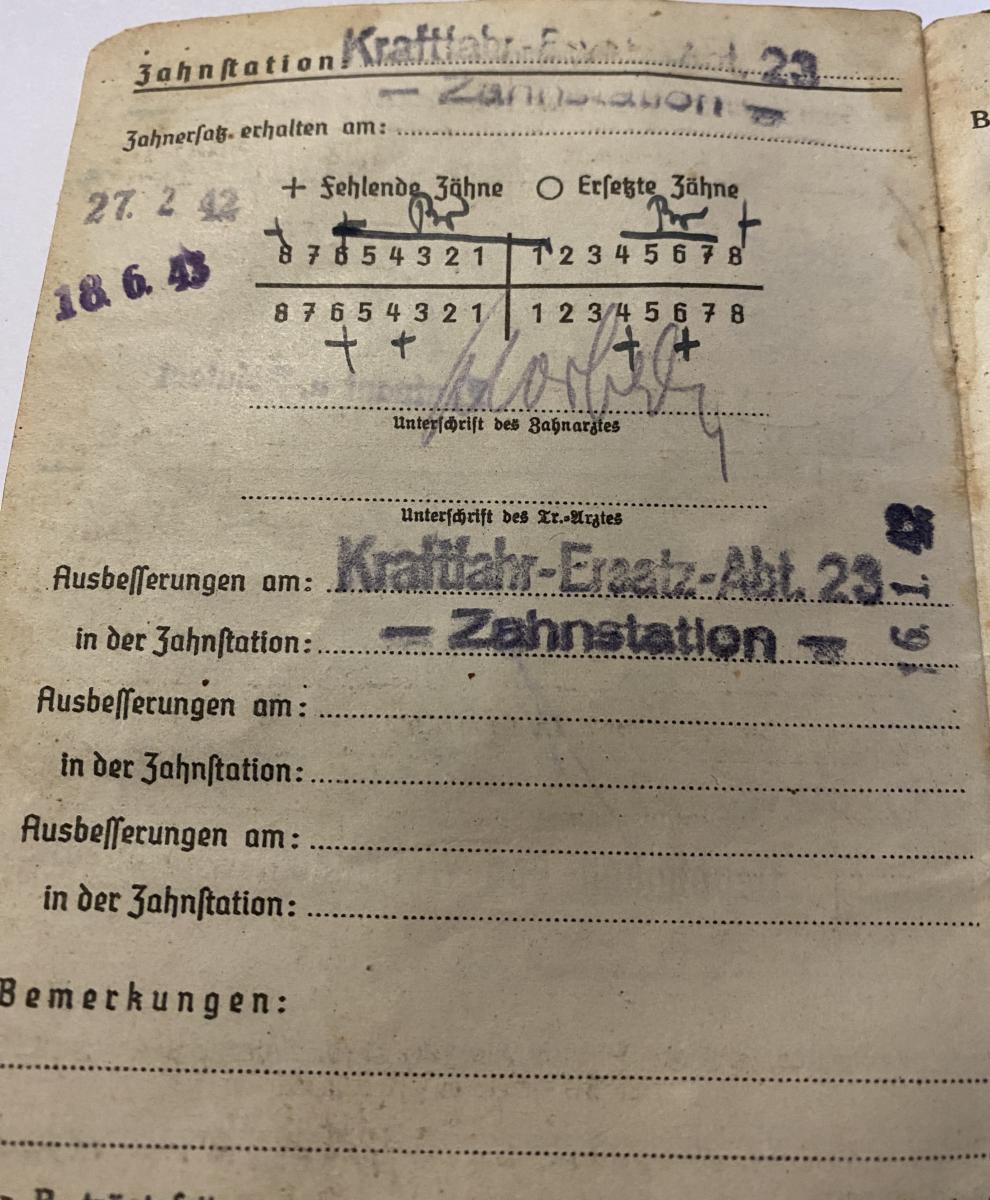 Zahnstation: Kraftfahr-Ersatz-Abt. 23
— Zahnstation —
Zahnersatz erhalten am:
27. 2 42
+ Fehlende Zähne ○ Ersetzte Zähne
Br Br
+ + +
8 7 6 5 4 3 2 1 1 2 3 4 5 6 7 8
18. 6. 43
8 7 6 5 4 3 2 1 1 2 3 4 5 6 7 8
+ + + +
Unterschrift des Zahnarztes
Unterschrift des Tr.-Arztes
Ausbesserungen am: Kraftfahr-Ersatz-Abt. 23
in der Zahnstation: — Zahnstation —
Ausbesserungen am:
in der Zahnstation:
Ausbesserungen am:
in der Zahnstation:
Bemerkungen:
B